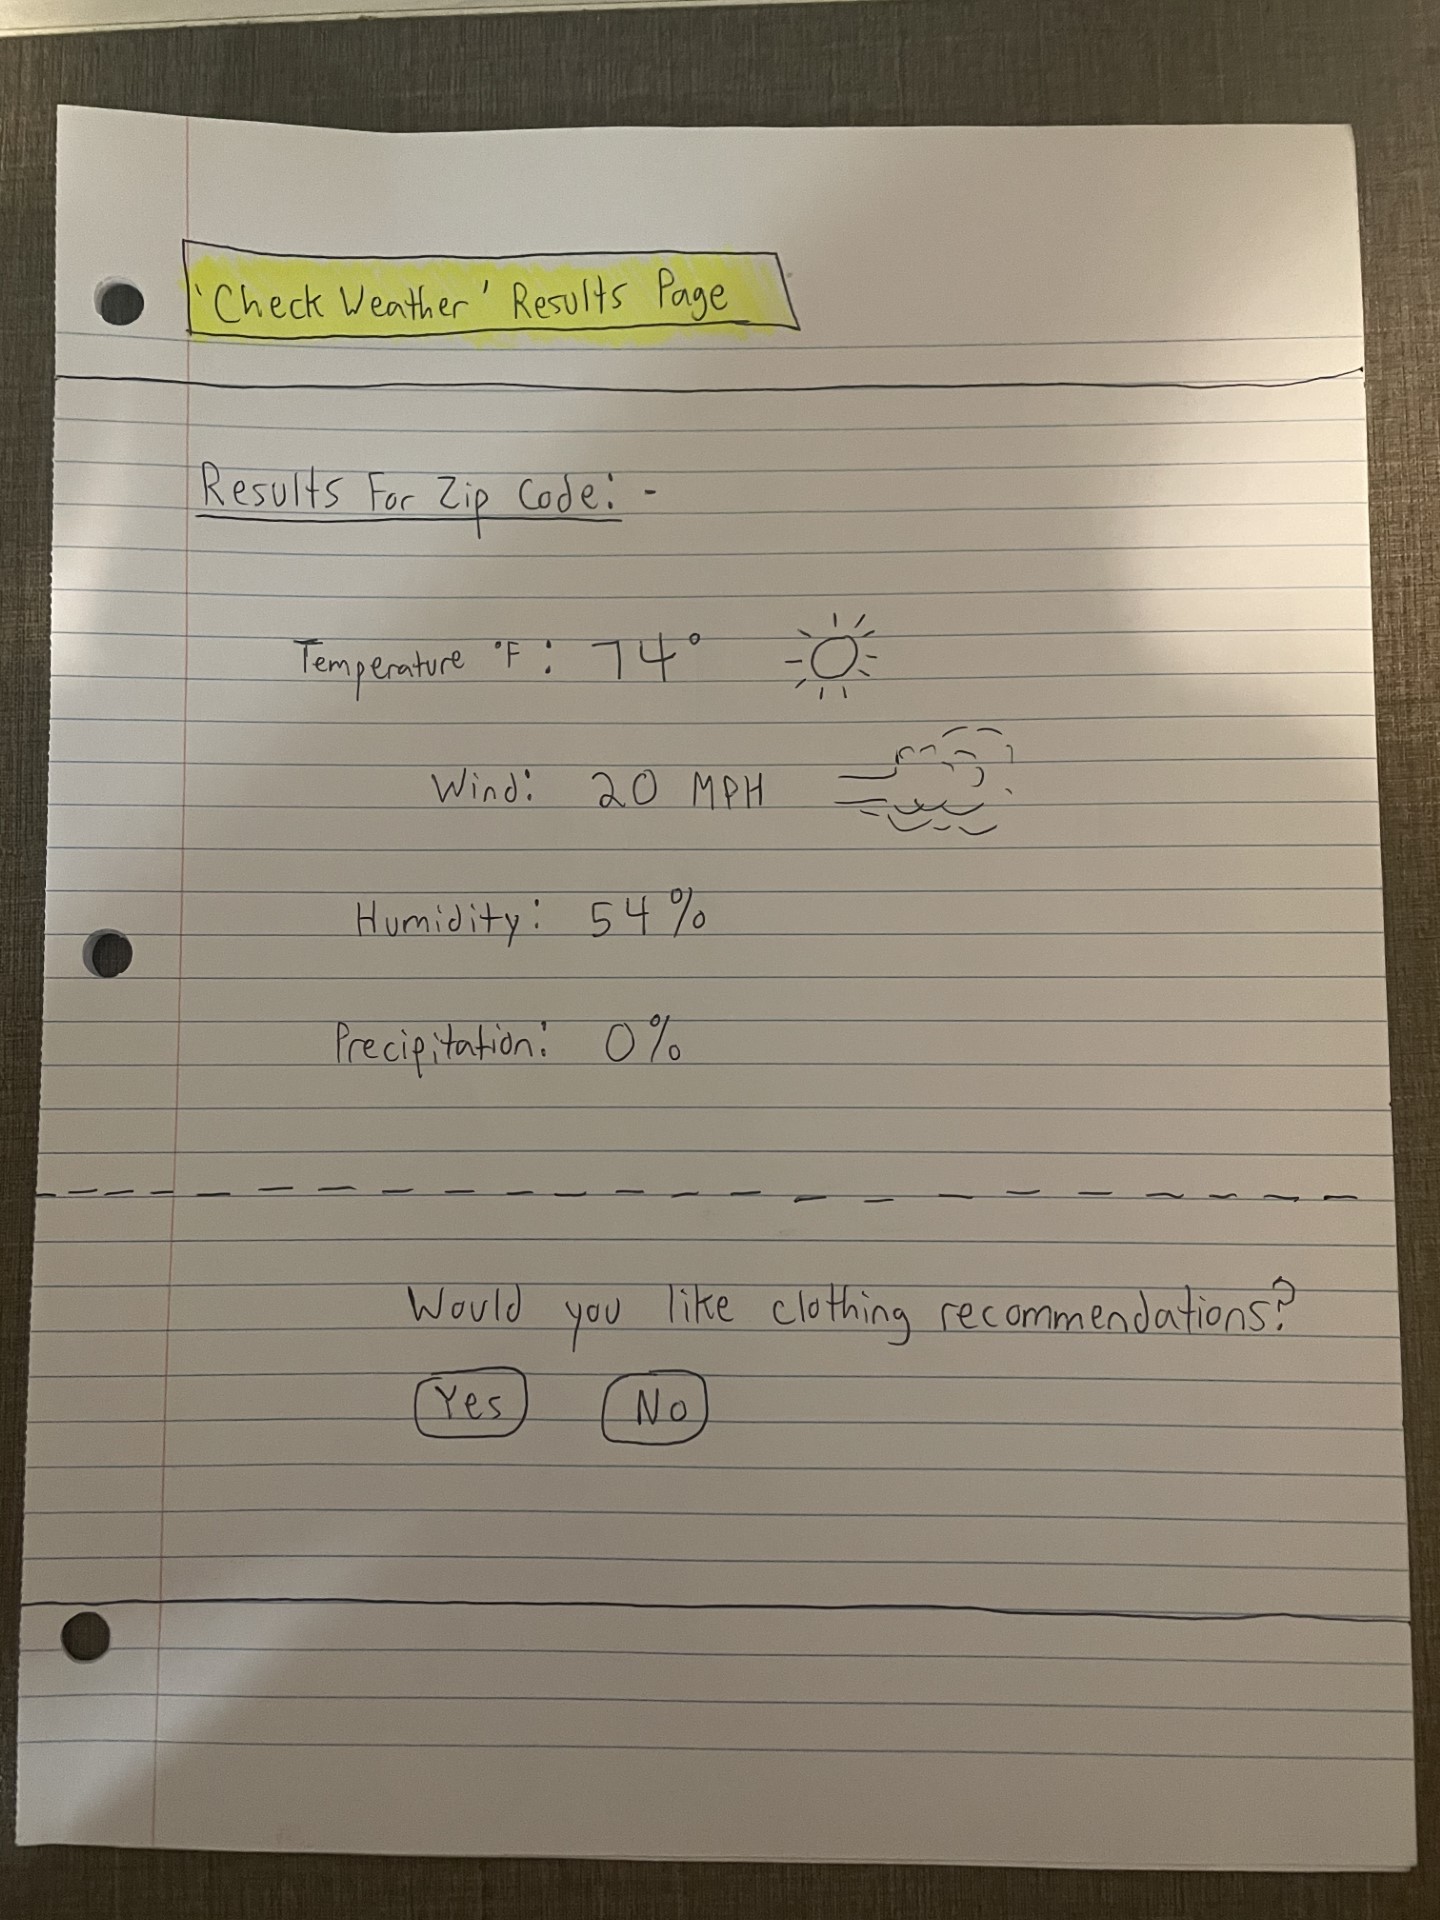 'Check Weather' Results Page
Results For Zip Code: -
Temperature °F: 74°
Wind: 20 MPH
Humidity: 54%
Precipitation: 0%
Would you like clothing recommendations?
Yes No